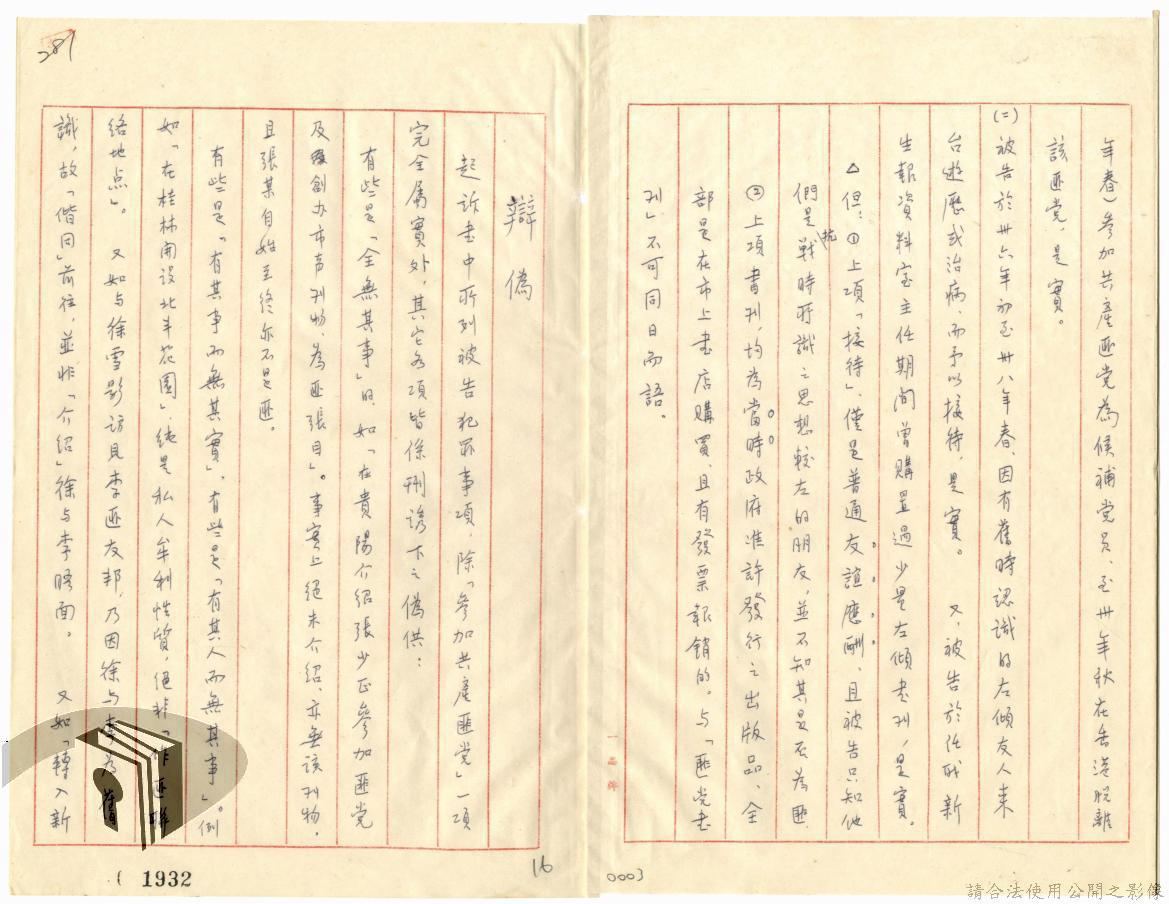 年春）參加共產匪党為候補党员、至卅年秋在香港脫離
該匪党，是實。
(二)被告於卅六年初至卅八年春、因有舊時認識的左傾友人来
台遊歷或治病、而予以接待，是實。又，被告於任职新
生報資料室主任期间曾購置過少量左傾書刊，是實。
△但：①上項「接待」，僅是普通友誼應酬、且被告只知他
們是抗戰時所識之思想較左的朋友，並不知其是否為匪
②上項書刊，均為當時政府准許發行之出版品、全
部是在市上書店購買、且有發票報銷的。与「匪党书
刊」不可同日而語。
0003
一品牌
281
辯偽
起訴書中所列被告犯罪事項，除「參加共產匪党」一項
完全属實外，其它各項皆係刑誘下之偽供：
有些是「全無其事」的，如「在貴陽介紹張少正參加匪党
及創办市亭刊物，為匪張目」。事實上絕未介绍、亦無該刊物，
且張某自始至終亦不是匪。
有些是「有其事而無其實」，有些是「有其人而無其事」。例
如「在桂林開設北斗花園」，純是私人牟利性質，絕非「作匪聯
络地点」。又如与徐雪影訪見李匪友邦，乃因徐与李為舊
識，故「偕同」前往，並非「介绍」徐与李晤面。又如「轉入新
16
(1932
請合法使用公開之影像